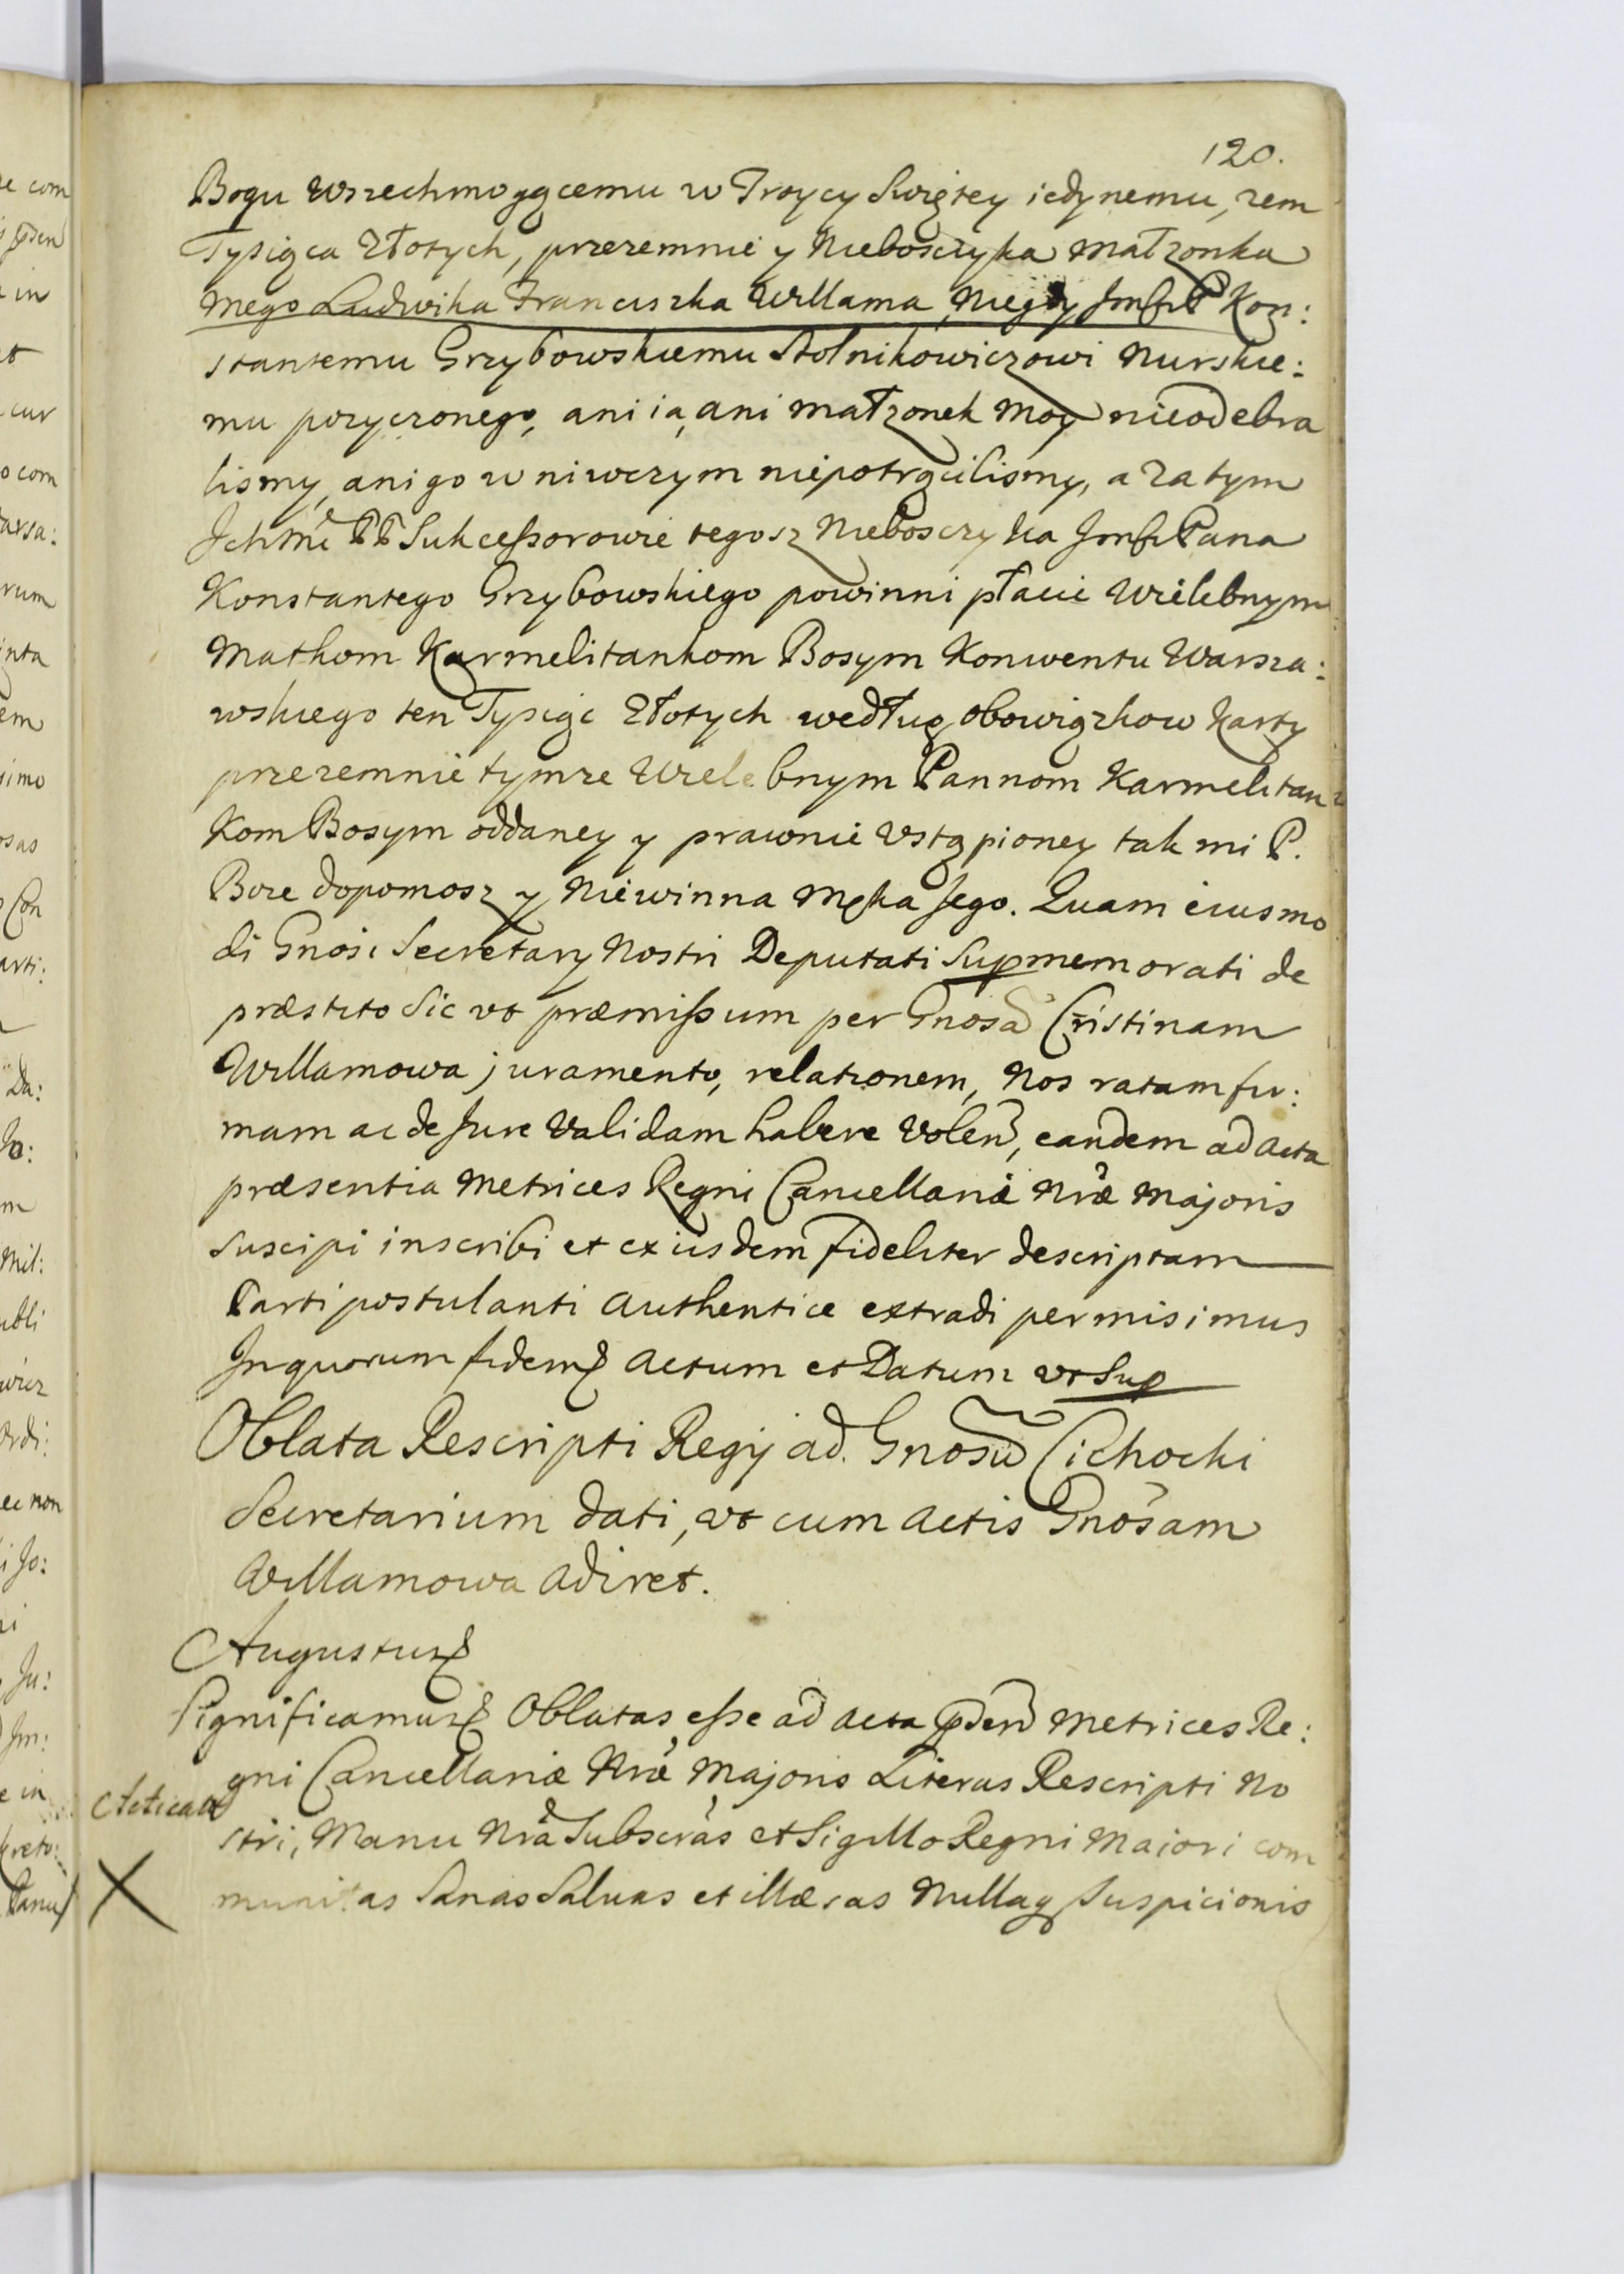 120.
Bogu Wszechmogącemu w Troycy Swiętey iedynemu, zem
Tysiąca Złotych, przezemnie y Nieboszczyka Małzonka
mego Ludwika Franciszka Willama, Niegdy Jmści P Kon:
stantemu Grzybowskiemu Stolnikowiczowi Nurskie:
mu pozyczonego, ani ia, ani małzonek moy nieodebra
lismy, ani go w niwczym niepotrącilismy, a zatym
Ichmć PP Sukceßorowie tegosz Nieboszczyka Jmści Pana
Konstantego Grzybowskiego powinni płacić Wielebnym
Matkom Karmelitankom Bosym Konwentu Warsza:
wskiego ten Tysiąc Złotych według obowiązkow Karty
przezemnie tymze Wielebnym Pannom Karmelitan
Kom Bosym oddaney y prawnie Vstąpioney tak mi P.
Boze dopomosz y Niewinna Męka Jego. Quam eiusmo
di Gnosi Secretarij Nostri Deputati Supmemorati de
præstito Sic vt præmißum per Gnosã Cristinam
Willamowa juramento, relationem, Nos ratam fir:
mam ac de Jure Validam habere Volen, eandem ad Acta
præsentia Metrices Regni Cancellariæ Nræ Majoris
Suscipi inscribi et ex iisdem fideliter descriptam
Parti postulanti Authentice extradi permisimus
In quorum fidem Actum et Datum vt Sup
Oblata Rescripti Regij ad. Gnosũ Cichocki
Secretarium dati, vt cum Actis Gnosam
Willamowa Adiret.
Augustus
Significamus Oblatas, eße ad Acta pden Metrices Re:
gni Cancellariæ Nræ Majoris Literas Rescripti No
stri, Manu Nrã Subscras et Sigillo Regni Maiori com
munitas Sanas Saluas et illæsas Nullaq Suspicionis
X